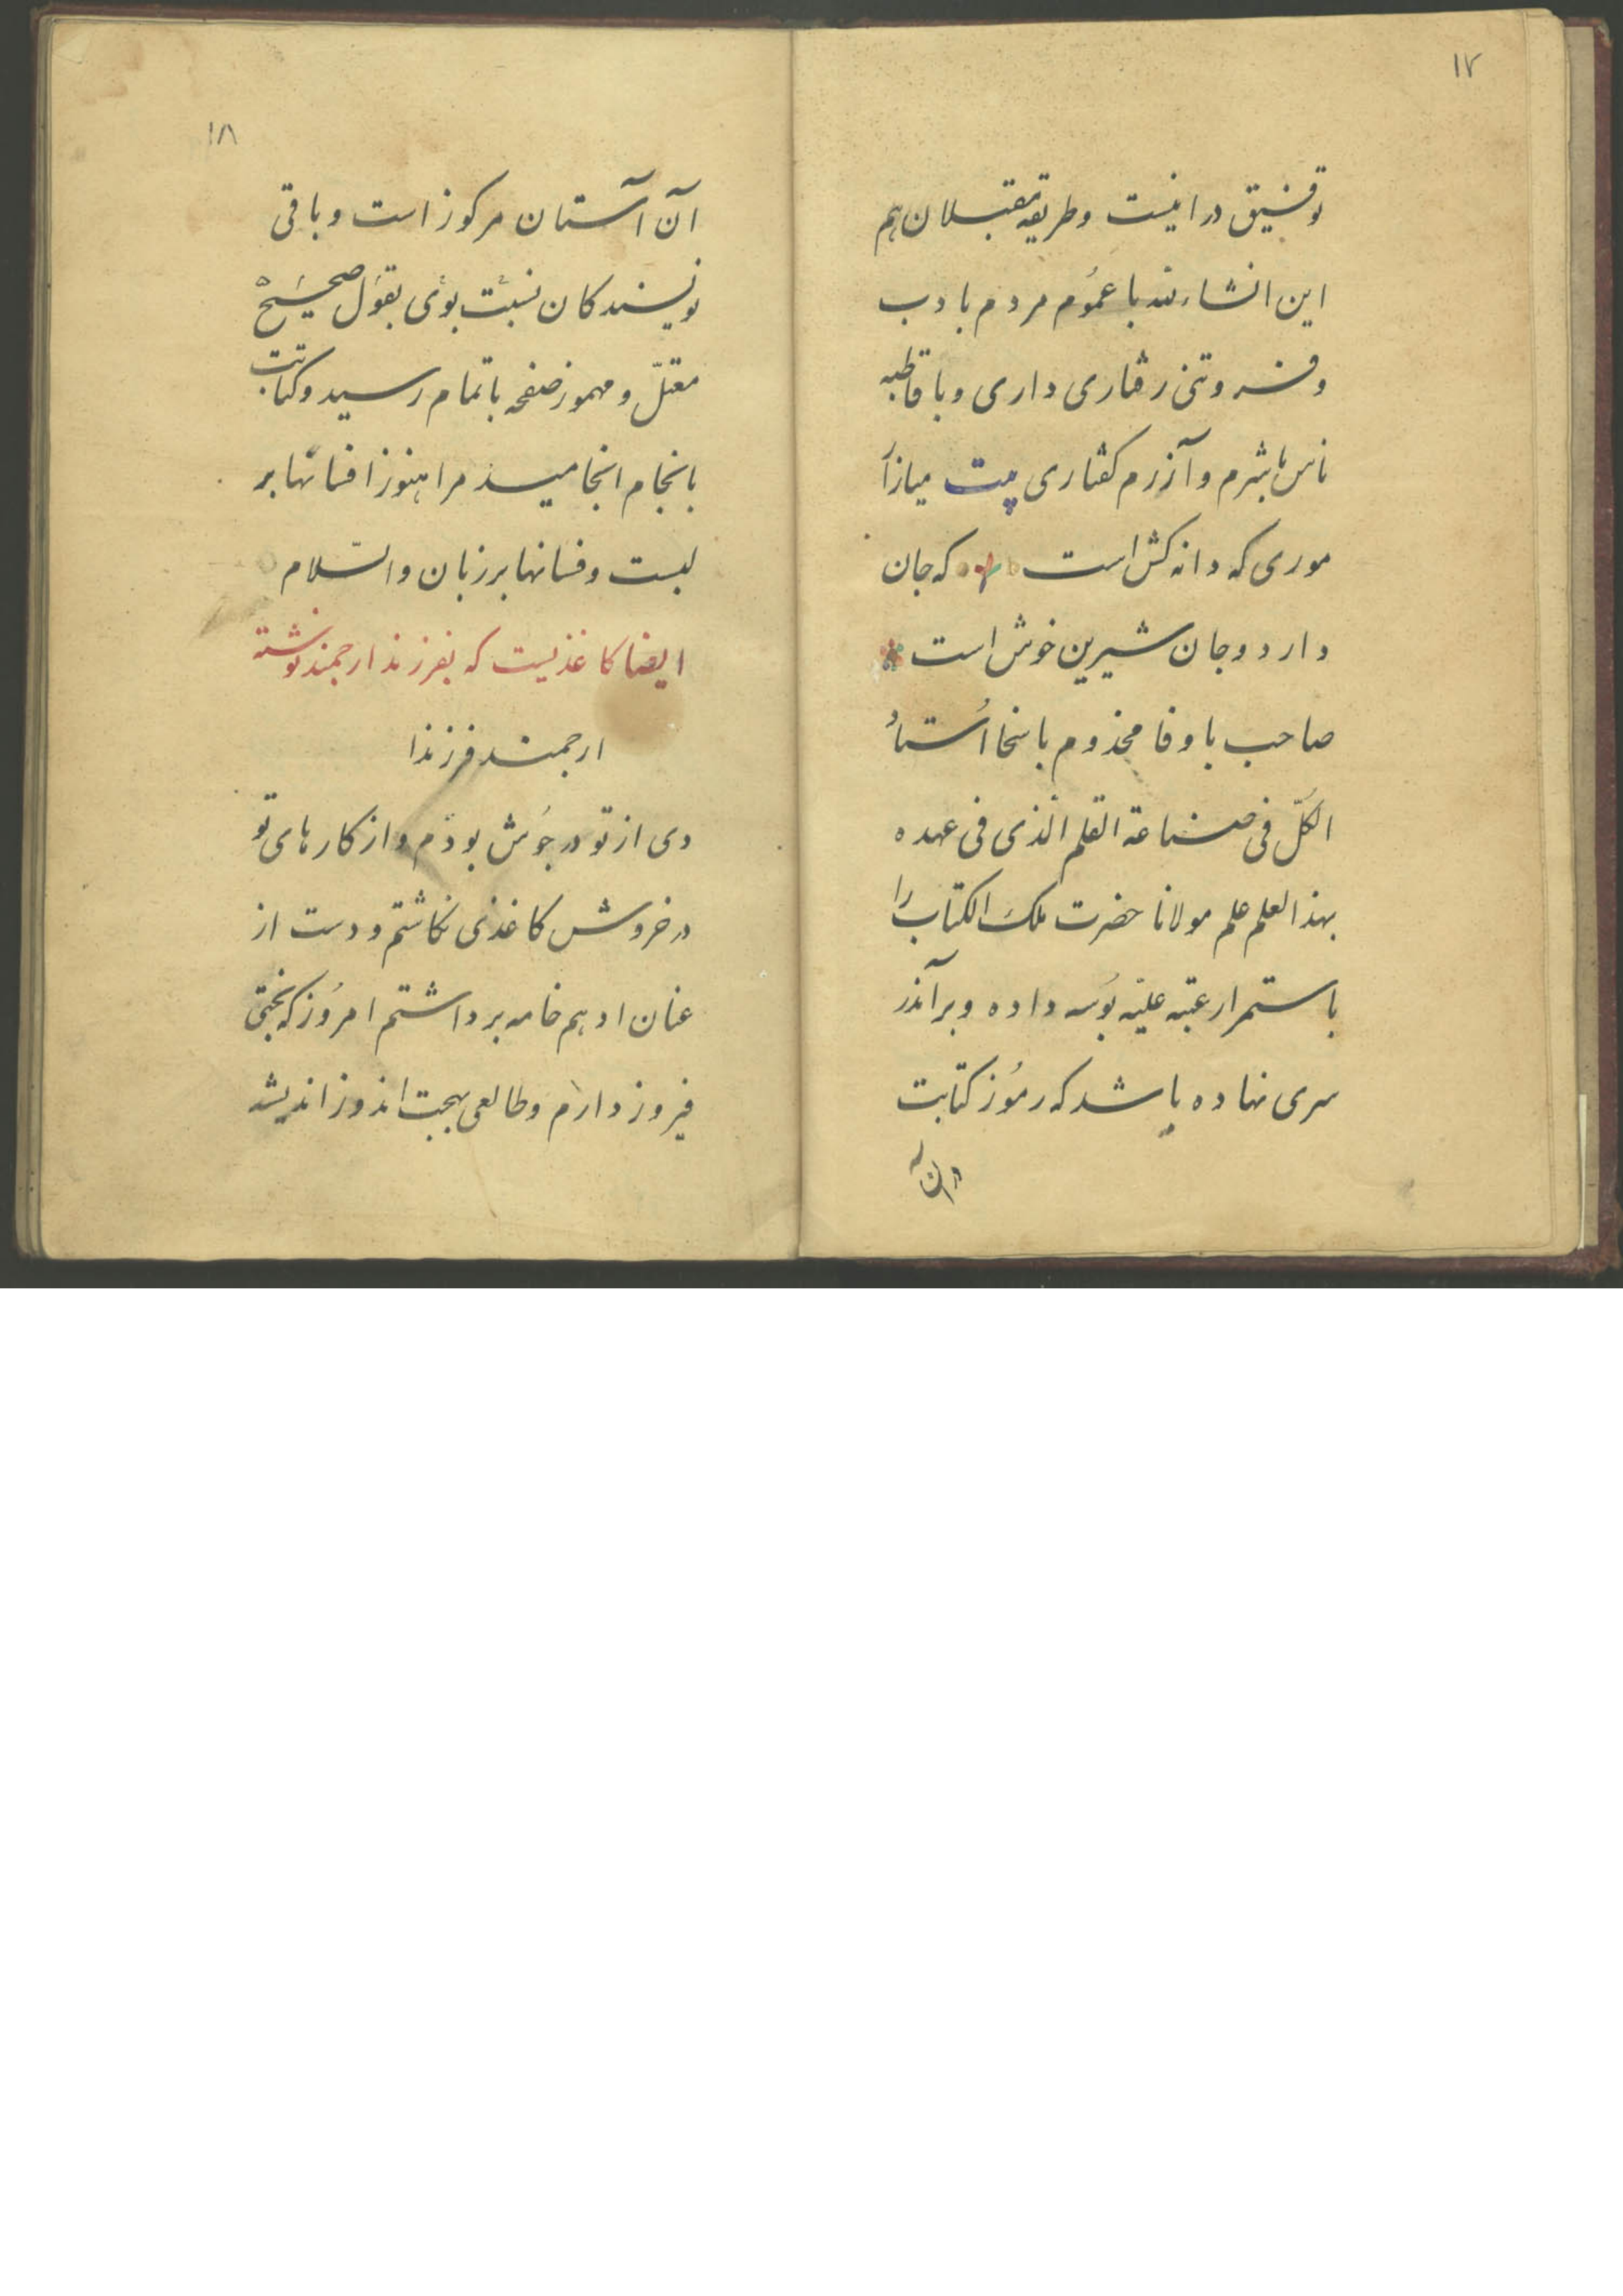 ۱۷
توفیق در اینست و طریقه مقبلان هم
این انشاءلله با عموم مردم بادب
و فروتنی رفتاری داری و با قاطبه
ناس باشرم و آزرم کفتاری بیت میازار
موری که دانه کش است که جان
دارد و جان شیرین خوش است
صاحب باوفا مخذوم باسخا استاد
الکلّ فی صناعة القلم الّذی فی عهده
بهذالعلم علم مولانا حضرت ملک الکتاب را
باستمرار عتبه علیّه بوسه داده و بر آندر
سری نهاده باشد که رموز کتابت
۱۸
آن آستان مرکوز است و باقی
نویسندکان نسبت بوی بقول صحیح
معتلّ و مهموز صفحه باتمام رسید و کتابت
بانجام انجامید مرا هنوز افسانها بر
لبست و فسانها بر زبان والسّلام
ایضا کاغذیست که بفرزند ارجمند نوشته
ارجمند فرزندا
دی از تو در جوش بودم و از کارهای تو
در خروش کاغذی نکاشتم و دست از
عنان ادهم خامه برداشتم امروز که بختی
فیروز دارم و طالعی بهجت اندوز اندیشه